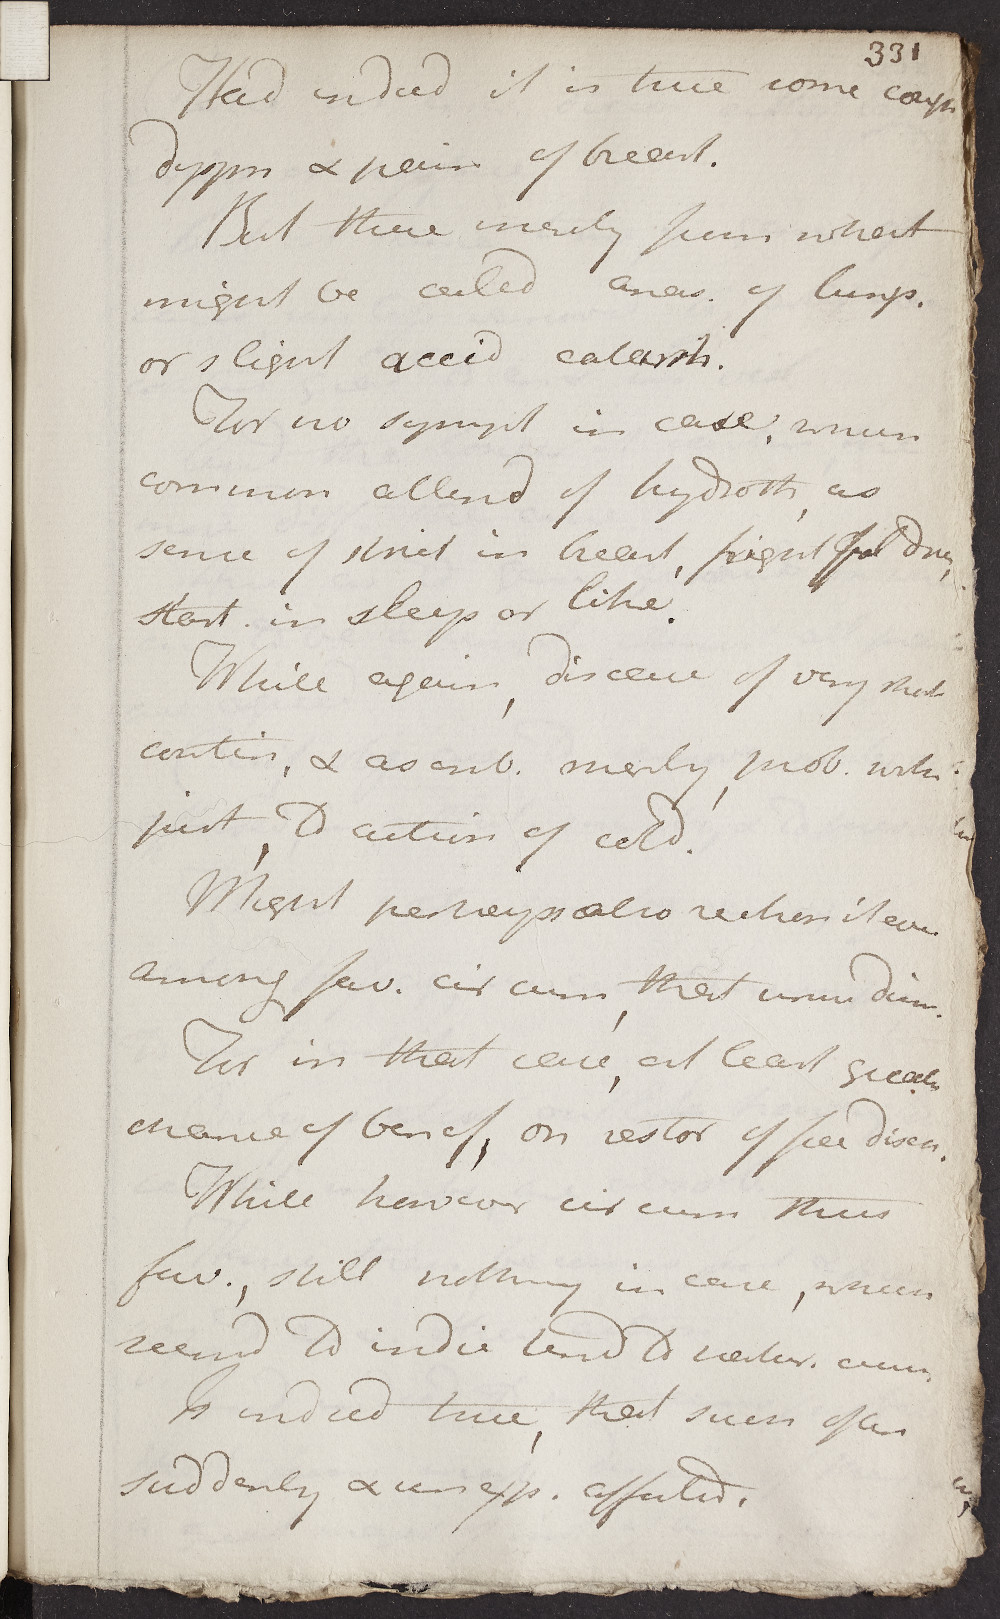 331
Had indeed it is true some cough
dyspn & pain of breast.
But these merely from what
might be called anas. of lungs.
or slight accid catarrh.
For no sympt in case, when
common attend of hydroth, as
sense of strict in breast, frightful
start. in sleep or like.
While again, disease of very short
contin, & as arib. merely, prob. with
just, to action of cold.
Might perhaps also reckon it even
among fav. circum, that urine dim.
For in that case, at least greater
chance of benef, on restor of free disch.
While however circum thus
fav., still nothing in case, which
seemd to indic tend to natur. cure
Is indeed true, that such often
suddenly & unexp. affected.